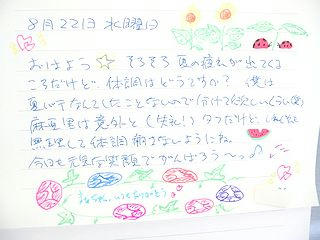 8月22日 水曜日
おはよう☆ そろそろ夏の疲れが出てくる
ころだけど、体調はどうですか? 僕は
夏バテなんてしたことないので分けて欲しいくらい(笑)
麻亜里は意外と(失礼)タフだけど、くれぐれも
無理して体調崩さないようにね。
今日も元気な笑顔でがんばろう〜っ♪
いつもありがとう